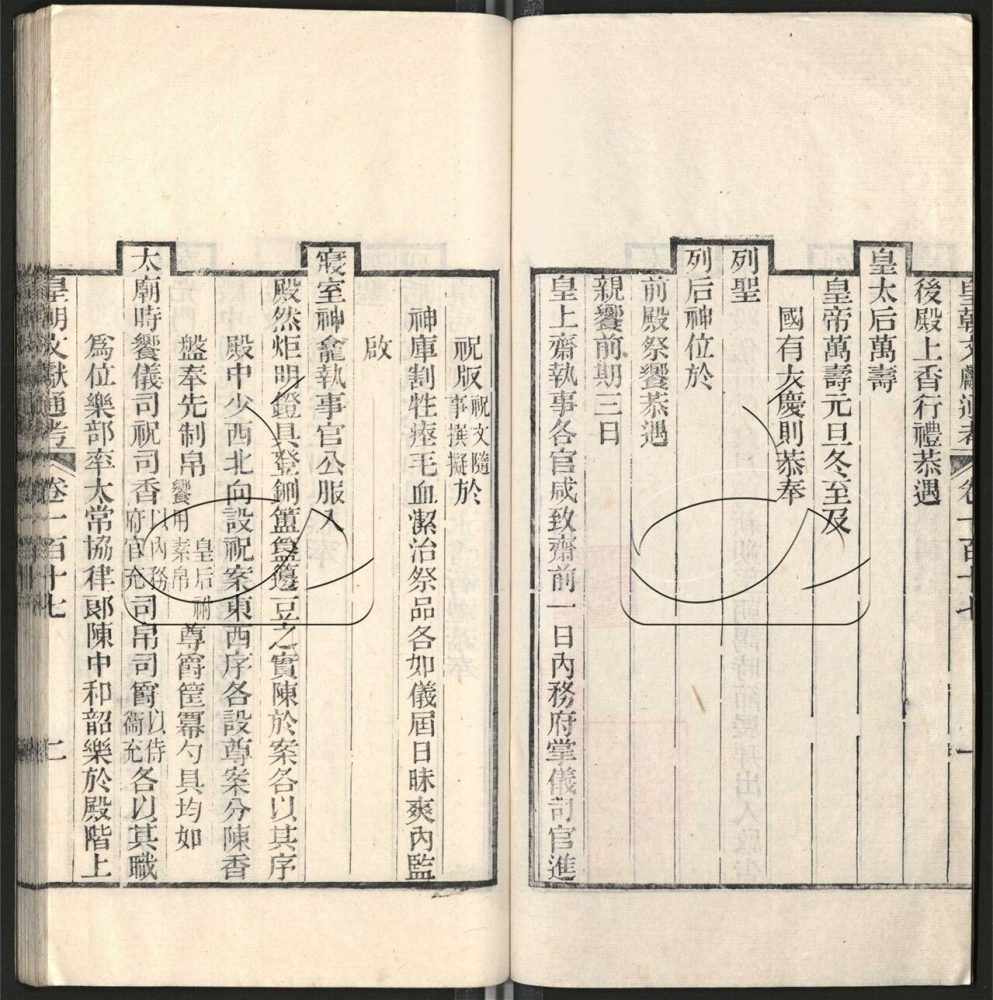 皇朝文獻通考 卷一百十七 一
後殿上香行禮恭遇
皇太后萬壽
皇帝萬壽元旦冬至及
國有大慶則恭奉
列聖
列后神位於
前殿祭饗恭遇
親饗前期三日
皇上齋執事各官咸致齋前一日內務府掌儀司官進
祝版祝文隨事撰擬於
神庫割牲瘞毛血潔治祭品各如儀屆日昧爽內監
啟
寢室神龕執事官公服入
殿然炬明鐙具登鉶簠簋籩豆之實陳於案各以其序
殿中少西北向設祝案東西序各設尊案分陳香
盤奉先制帛皇后祔饗用素帛尊爵篚冪勺具均如
太廟時饗儀司祝司香以內務府官充司帛司爵以侍衞充各以其職
為位樂部率太常協律郎陳中和韶樂於殿階上
皇朝文獻通考 卷一百十七 二